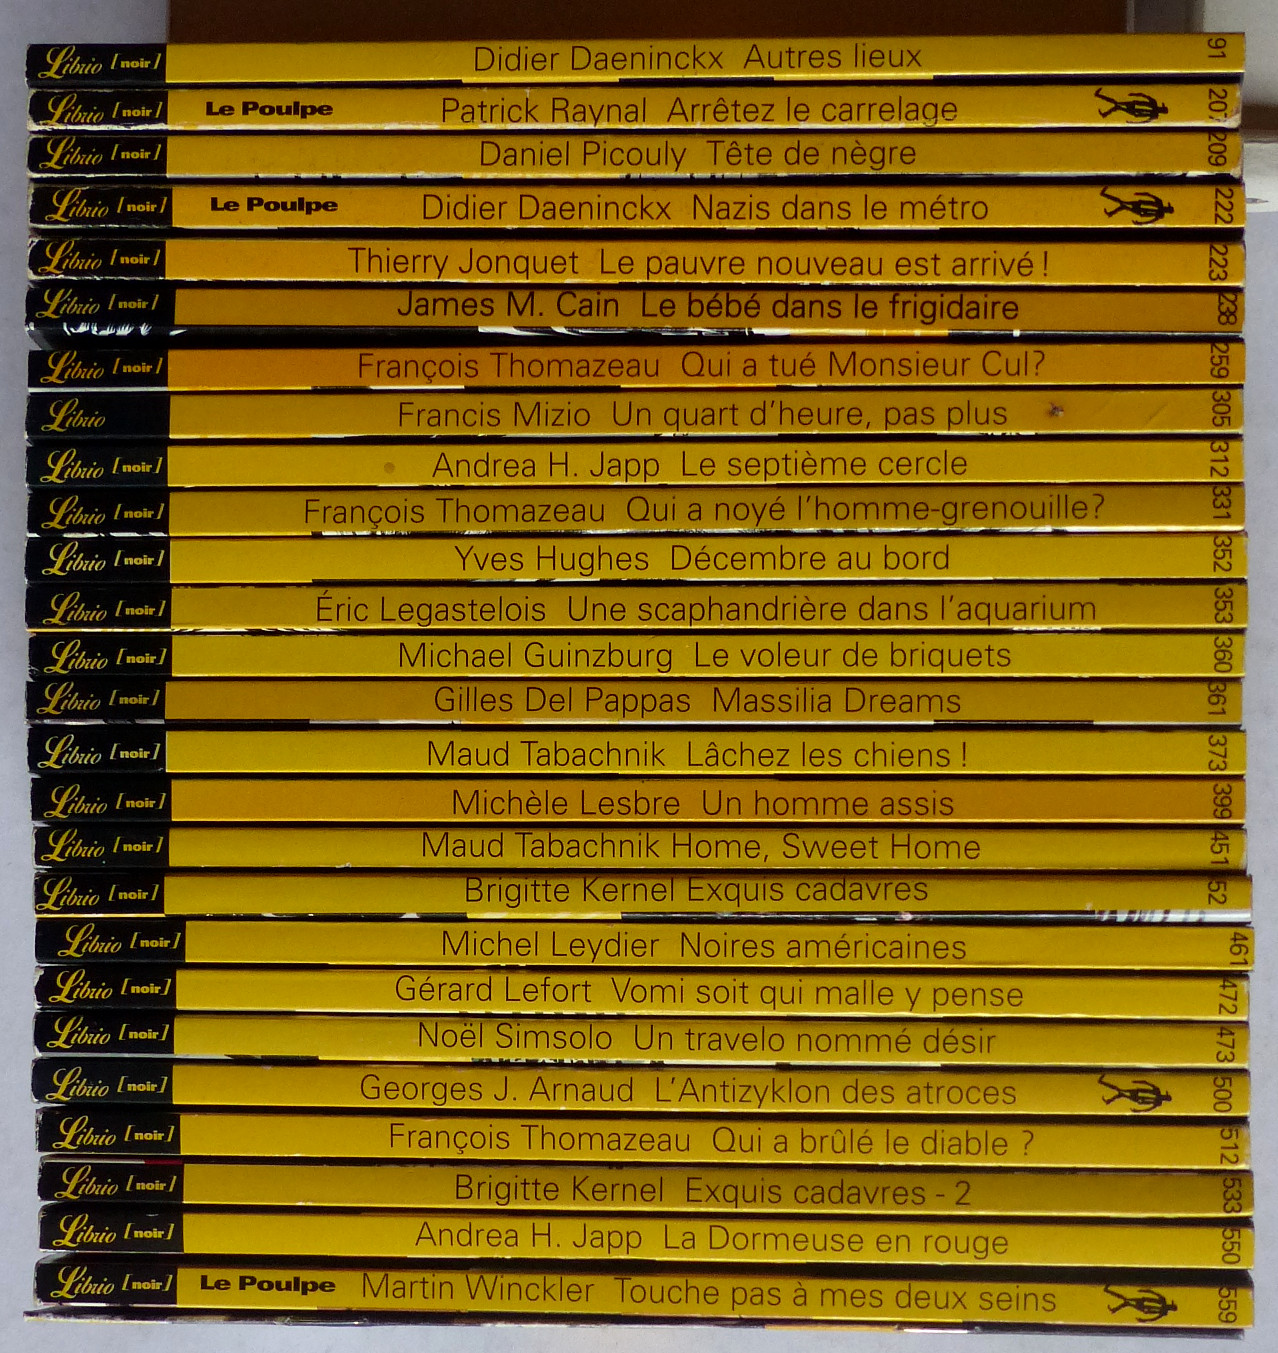 Librio [noir] Didier Daeninckx Autres lieux 91
Librio [noir] Le Poulpe Patrick Raynal Arrêtez le carrelage 207
Librio [noir] Daniel Picouly Tête de nègre 209
Librio [noir] Le Poulpe Didier Daeninckx Nazis dans le métro 222
Librio [noir] Thierry Jonquet Le pauvre nouveau est arrivé ! 223
Librio [noir] James M. Cain Le bébé dans le frigidaire 238
Librio [noir] François Thomazeau Qui a tué Monsieur Cul? 259
Librio Francis Mizio Un quart d'heure, pas plus 305
Librio [noir] Andrea H. Japp Le septième cercle 312
Librio [noir] François Thomazeau Qui a noyé l'homme-grenouille? 331
Librio [noir] Yves Hughes Décembre au bord 352
Librio [noir] Éric Legastelois Une scaphandrière dans l'aquarium 353
Librio [noir] Michael Guinzburg Le voleur de briquets 360
Librio [noir] Gilles Del Pappas Massilia Dreams 361
Librio [noir] Maud Tabachnik Lâchez les chiens ! 373
Librio [noir] Michèle Lesbre Un homme assis 399
Librio [noir] Maud Tabachnik Home, Sweet Home 451
Librio [noir] Brigitte Kernel Exquis cadavres 52
Librio [noir] Michel Leydier Noires américaines 461
Librio [noir] Gérard Lefort Vomi soit qui malle y pense 472
Librio [noir] Noël Simsolo Un travelo nommé désir 473
Librio [noir] Georges J. Arnaud L'Antizyklon des atroces 500
Librio [noir] François Thomazeau Qui a brûlé le diable ? 512
Librio [noir] Brigitte Kernel Exquis cadavres - 2 533
Librio [noir] Andrea H. Japp La Dormeuse en rouge 550
Librio [noir] Le Poulpe Martin Winckler Touche pas à mes deux seins 559